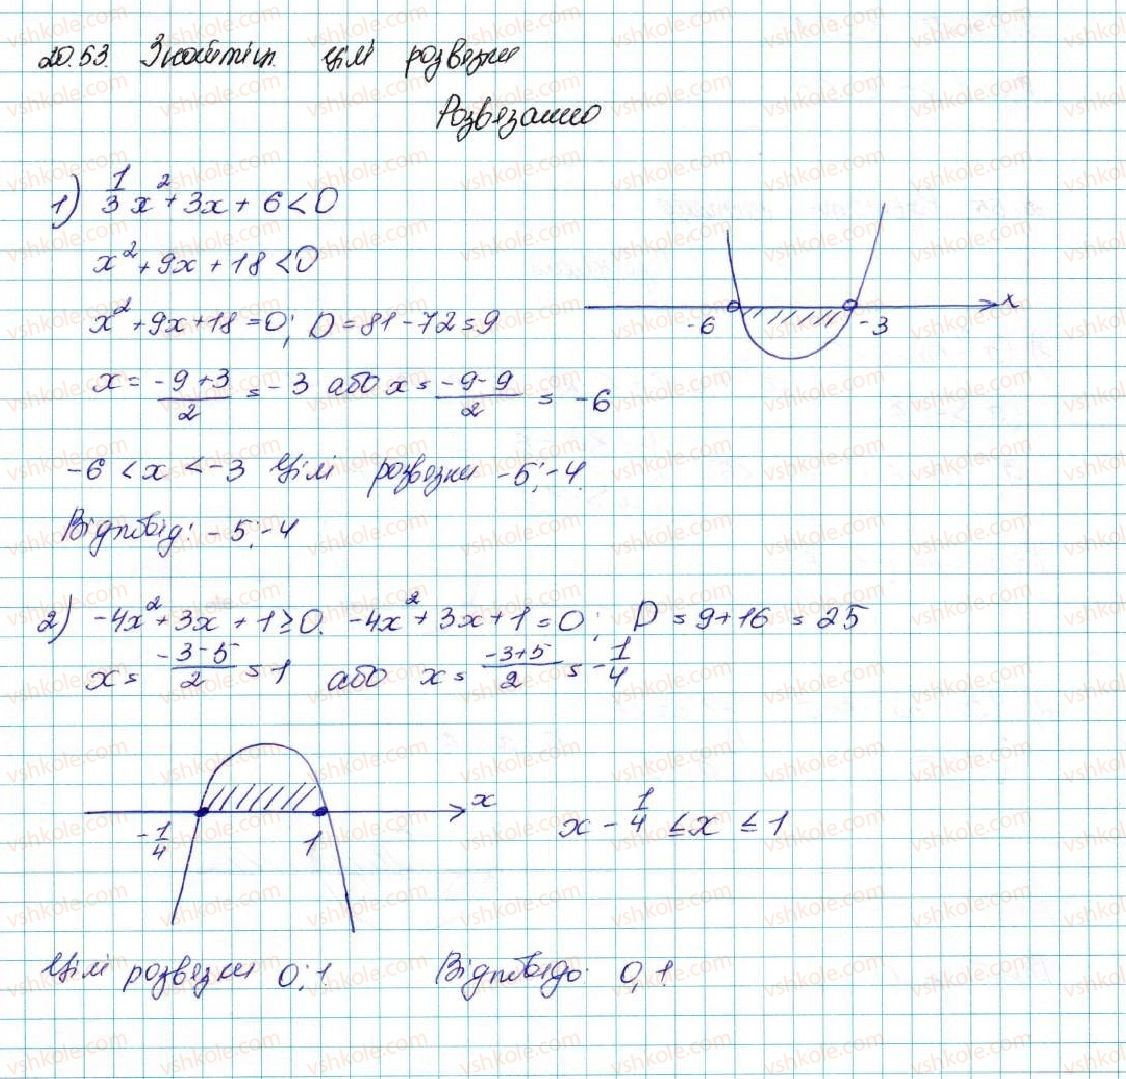 20.53. Знайти цілі розвязки
Розвязанно
1) 1/3 x² + 3x + 6 < 0
x² + 9x + 18 < 0
x² + 9x + 18 = 0; D = 81 - 72 = 9
x = (-9+3)/2 = -3 або x = (-9-9)/2 = -6
-6 -3 x
-6 < x < -3 Цілі розвязки -5; -4.
Відповід: -5; -4
2) -4x² + 3x + 1 ≥ 0. -4x² + 3x + 1 = 0; D = 9 + 16 = 25
x = (-3-5)/2 = 1 або x = (-3+5)/2 = -1/4
-1/4 1 x
x - 1/4 ≤ x ≤ 1
Цілі розвязки 0; 1. Відповідо: 0, 1.